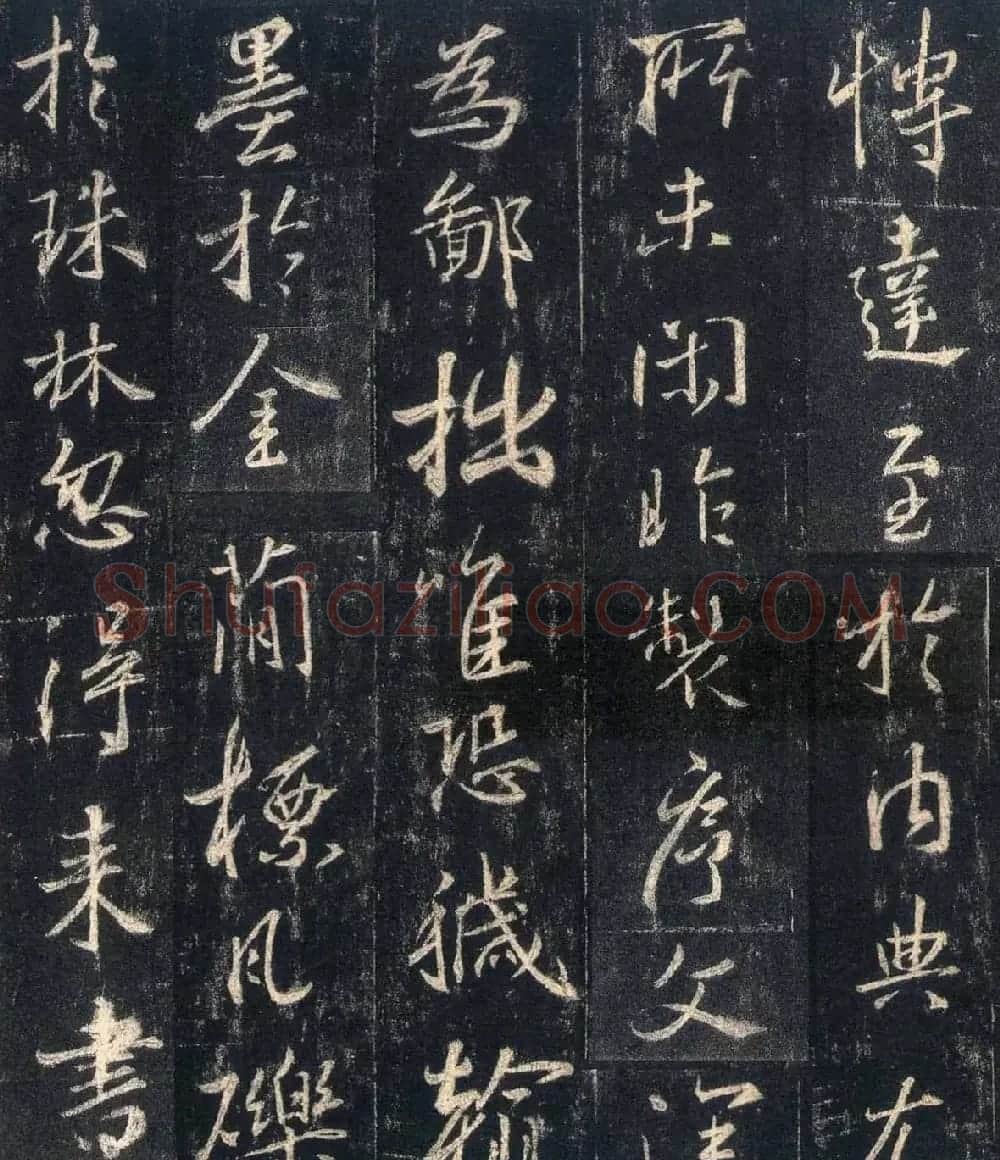 愽達至於内典尤
所未閑昨製序文深
為鄙拙唯恐穢翰
墨於金簡標瓦礫
於珠林忽得来書
Shufaziliao.COM